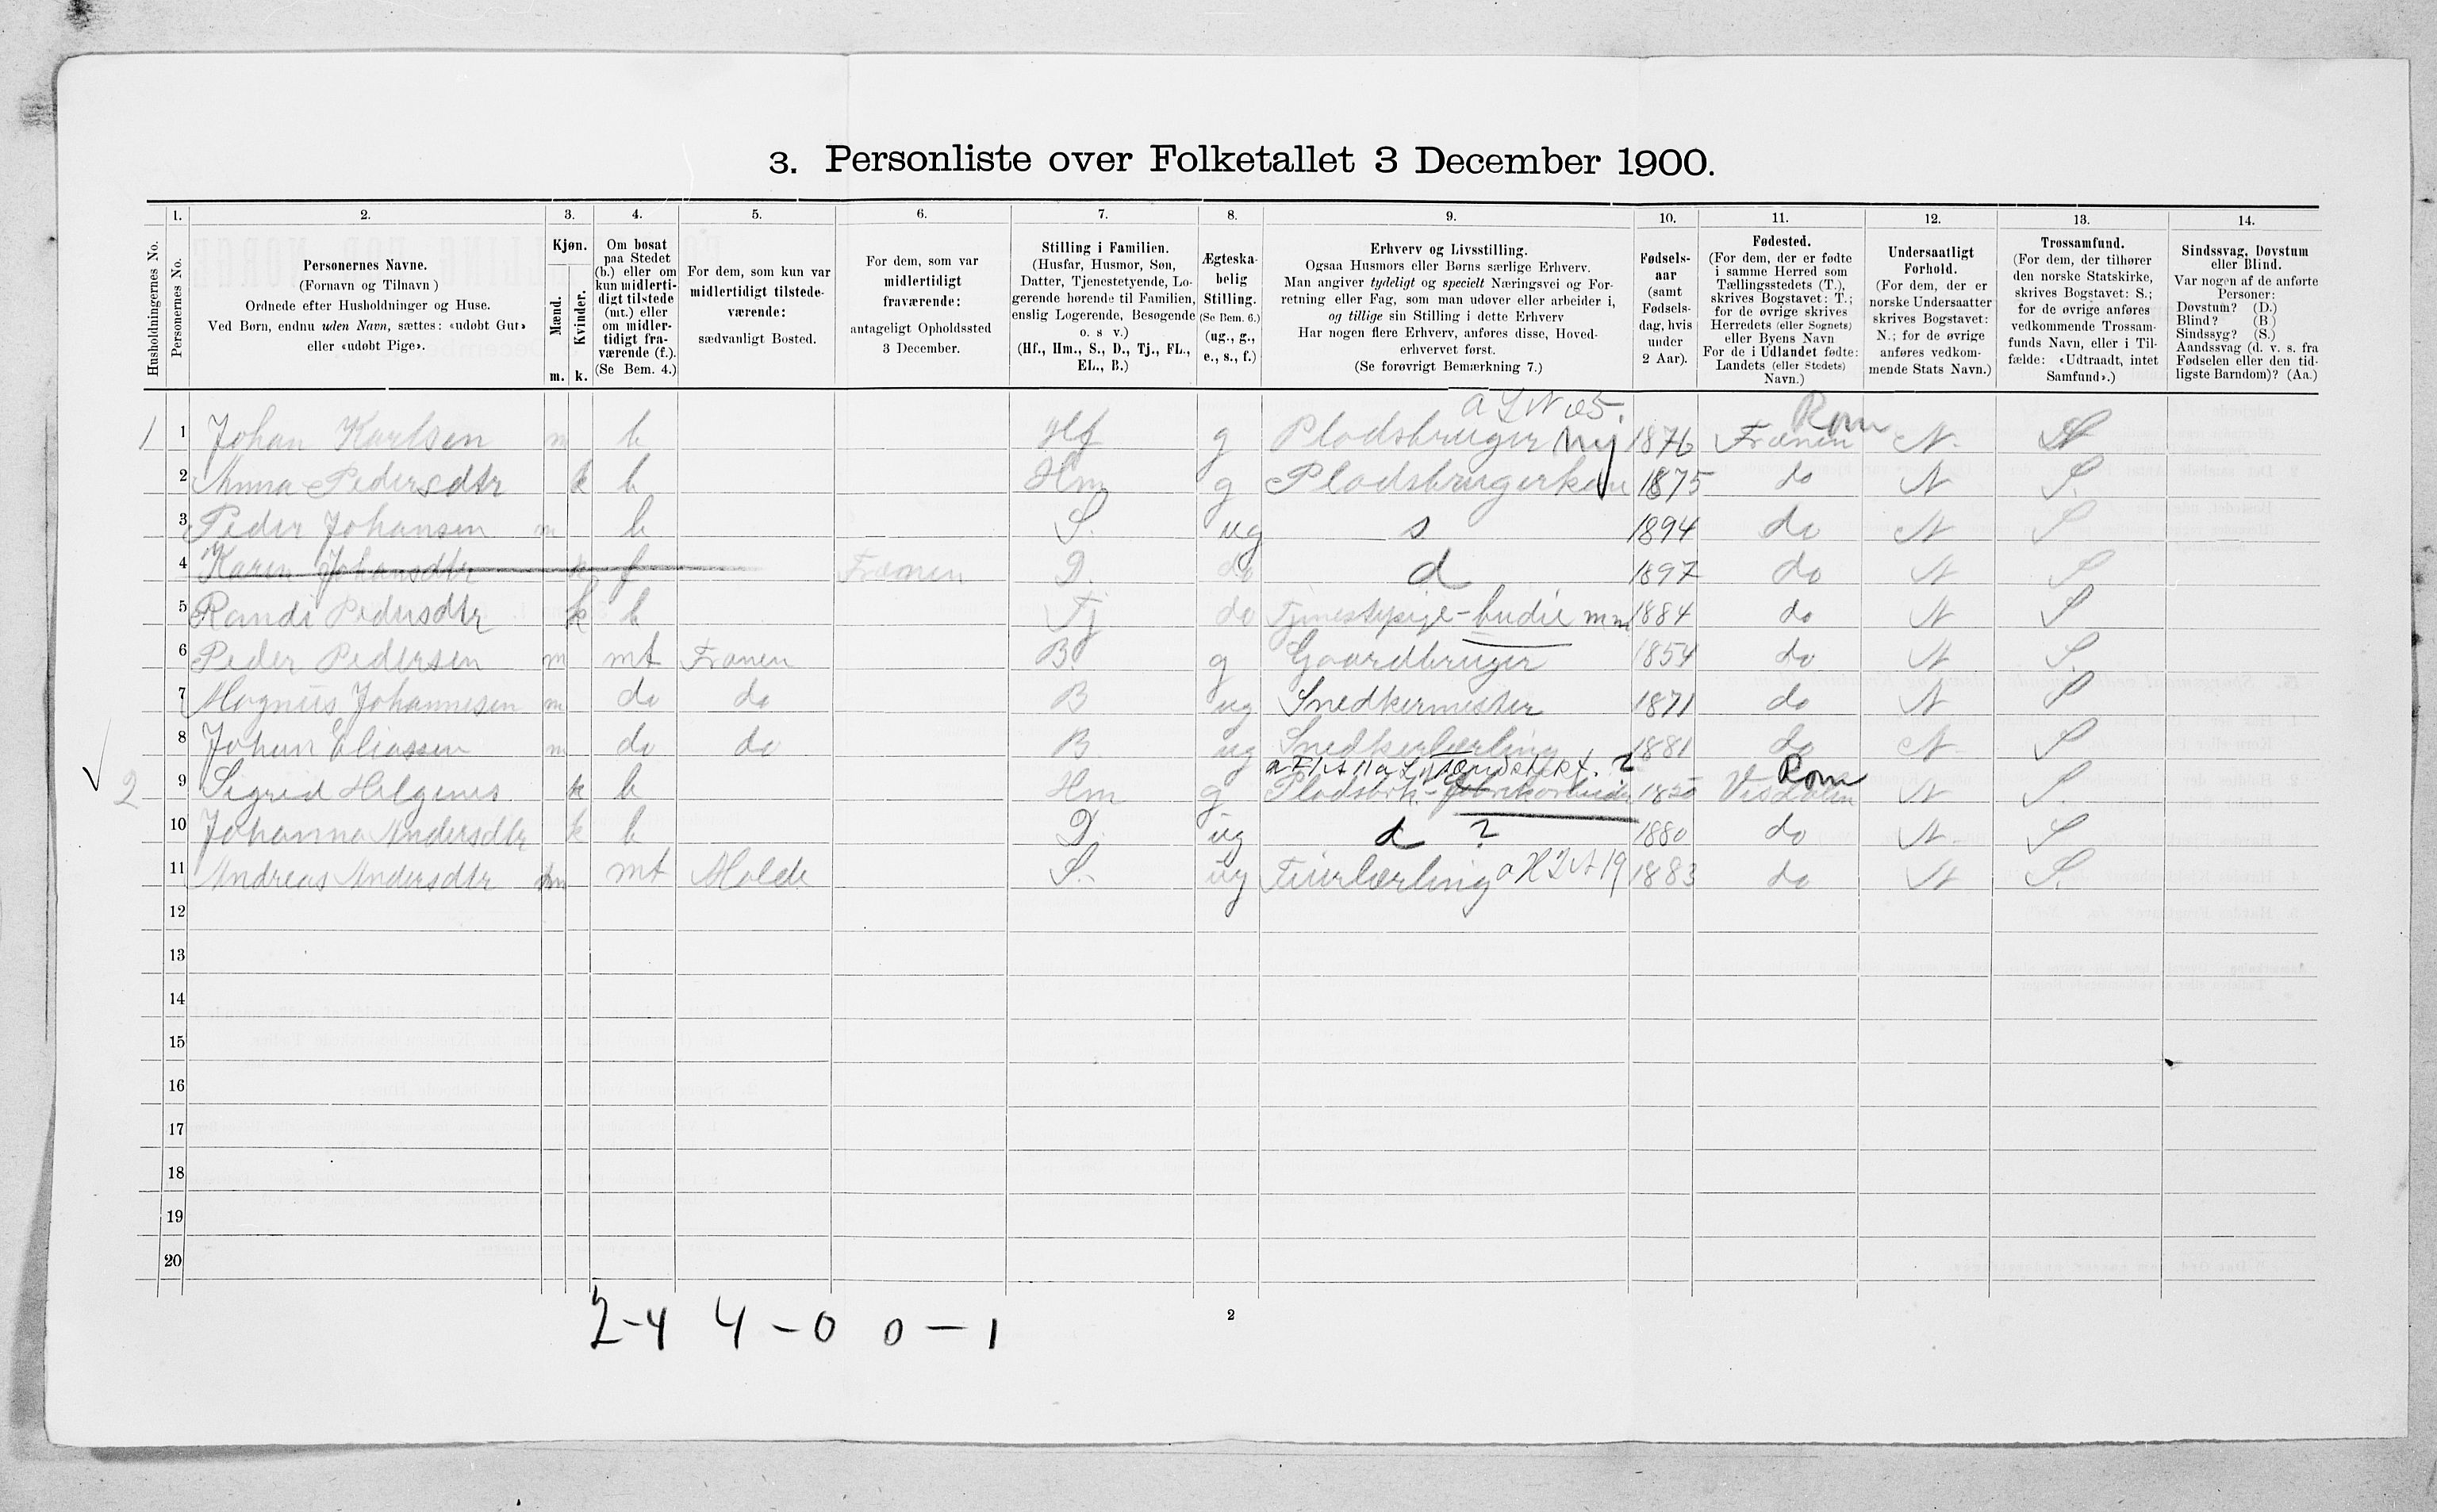 3. Personliste over Folketallet 3 December 1900.
1. 2. 3. 4. 5. 6. 7. 8. 9. 10. 11. 12. 13. 14.
Husholdningernes No.
Personernes No.
Personernes Navne.
(Fornavn og Tilnavn )
Ordnede efter Husholdninger og Huse.
Ved Børn, endnu uden Navn, sættes: «udøbt Gut»
eller «udøbt Pige».
Kjøn.
Mænd.
Kvinder.
m. k.
Om bosat
paa Stedet
(b.) eller om
kun midlerti-
digt tilstede
(mt.) eller
om midler-
tidigt fra-
værende (f.).
(Se Bem. 4.)
For dem, som kun var
midlertidigt tilstede-
værende:
sædvanligt Bosted.
For dem, som var
midlertidigt
fraværende:
antageligt Opholdssted
3 December.
Stilling i Familien.
(Husfar, Husmor, Søn,
Datter, Tjenestetyende, Lo-
gerende hørende til Familien,
enslig Logerende, Besøgende
o. s v.)
(Hf., Hm., S., D., Tj., FL.,
EL., B.)
Ægteska-
belig
Stilling.
(Se Bem. 6.)
(ug., g.,
e., s., f.)
Erhverv og Livsstilling.
Ogsaa Husmors eller Børns særlige Erhverv.
Man angiver tydeligt og specielt Næringsvei og For-
retning eller Fag, som man udøver eller arbeider i,
og tillige sin Stilling i dette Erhverv
Har nogen flere Erhverv, anføres disse, Hoved-
erhvervet først.
(Se forøvrigt Bemærkning 7.)
Fødsels-
aar
(samt
Fødsels-
dag, hvis
under
2 Aar).
Fødested.
(For dem, der er fødte
i samme Herred som
Tællingsstedets (T.),
skrives Bogstavet: T.;
for de øvrige skrives
Herredets (eller Sognets)
eller Byens Navn
For de i Udlandet fødte:
Landets (eller Stedets)
Navn.)
Undersaatligt
Forhold.
(For dem, der er
norske Undersaatter
skrives Bogstavet:
N.; for de øvrige
anføres vedkom-
mende Stats Navn.)
Trossamfund.
(For dem, der tilhører
den norske Statskirke,
skrives Bogstavet: S.;
for de øvrige anføres
vedkommende Trossam-
funds Navn, eller i Til-
fælde: «Udtraadt, intet
Samfund».)
Sindssvag, Døvstum
eller Blind.
Var nogen af de anførte
Personer:
Døvstum? (D.)
Blind? (B.)
Sindssyg? (S.)
Aandssvag (d. v. s. fra
Fødselen eller den tid-
ligste Barndom)? (Aa.)
Rom
1 1 Johan Karlsen m b Hf g Pladsbruger 1876 Frænen N.
2 Anna Pedersdtr k b Hm g Pladsbrugerkone 1875 do N S.
3 Peder Johansen m b S. ug s 1894 do N S
4 Karen Johansdtr k f Frænen D. do d 1897 do N S
5 Randi Pedersdtr k b Tj do Tjenestepige - budeie m m 1884 do N S
6 Peder Pedersen m mt Frænen B. g Gaardbruger 1854 do N S.
7 Magnus Johannesen m do do B ug Snedkermester 1871 do N S
8 Johan Eliassen m do do B ug Snedkerlærling 1881 do N S
Rom
2 9 Sigrid Helgenes k b Hm g N S.
10 Johanna Andersdtr k b D. ug d ? 1880 do N. S
11 Andreas Andersdtr m mt Molde S. ug 1883 do N S.
12
13
14
15
16
17
18
19
20
2-4 4-0 0-1
2